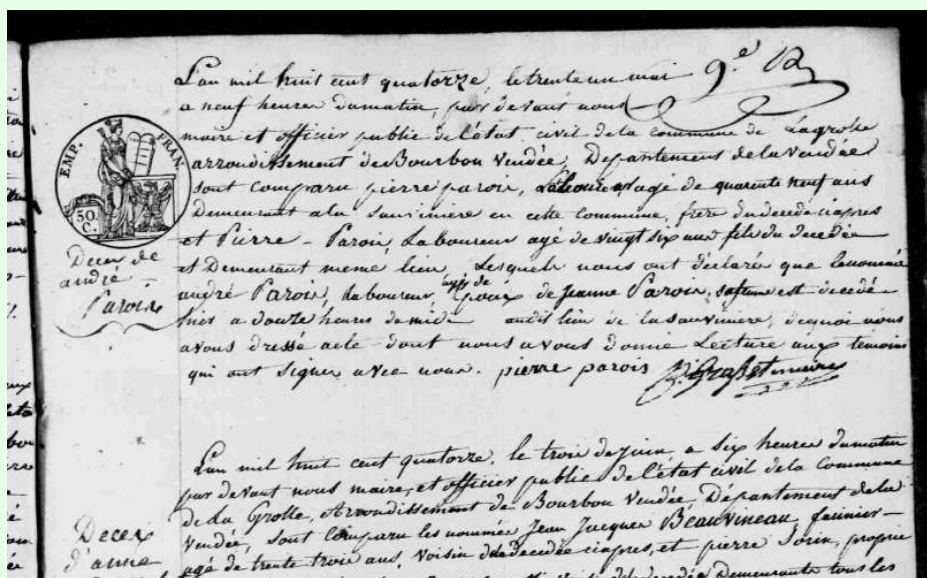 L'an mil huit cent quatorze, le trente un mai
9.e
a neuf heures du matin, par devant nous
maire et officier public de l'état civil de la commune de Lagrolle
arrondissement de Bourbon Vendée, Département de la Vendée
sont comparu pierre parois, Laboureur agé de quarente neuf ans
Demeurant a la Sauviniere en cette commune, frere du decedé ciapres
et Pierre - Parois, Laboureur agé de vingt six ans fils du decedée
et Demeurant meme lieu, Lesquels nous ont déclarée que le nommé
andré Parois, laboureur, époux de Jeanne Parois, sa feme est decedé
hier a douze heures de midi audit lieu de la sauviniere, de quoi nous
avons dressé acte dont nous avons donné Lecture aux temoins
qui ont signer avec nous. pierre parois maire
EMP. FRAN.
50.
C.
Deces de
andré
Parois
L'an mil huit cent quatorze, le trois de juin, a six heures du matin
par devant nous maire, et officier public de l'état civil de la Commune
de La Grolle, Arrondissement de Bourbon Vendée, Département de la
Vendée, sont Comparu les nommés Jean Jacques Beauvineau, farinier -
agé de trente trois ans, voisin de la decedée ciapres, et pierre Sorin, proprie
decedée Demeurants tous les
Deces
d'anne